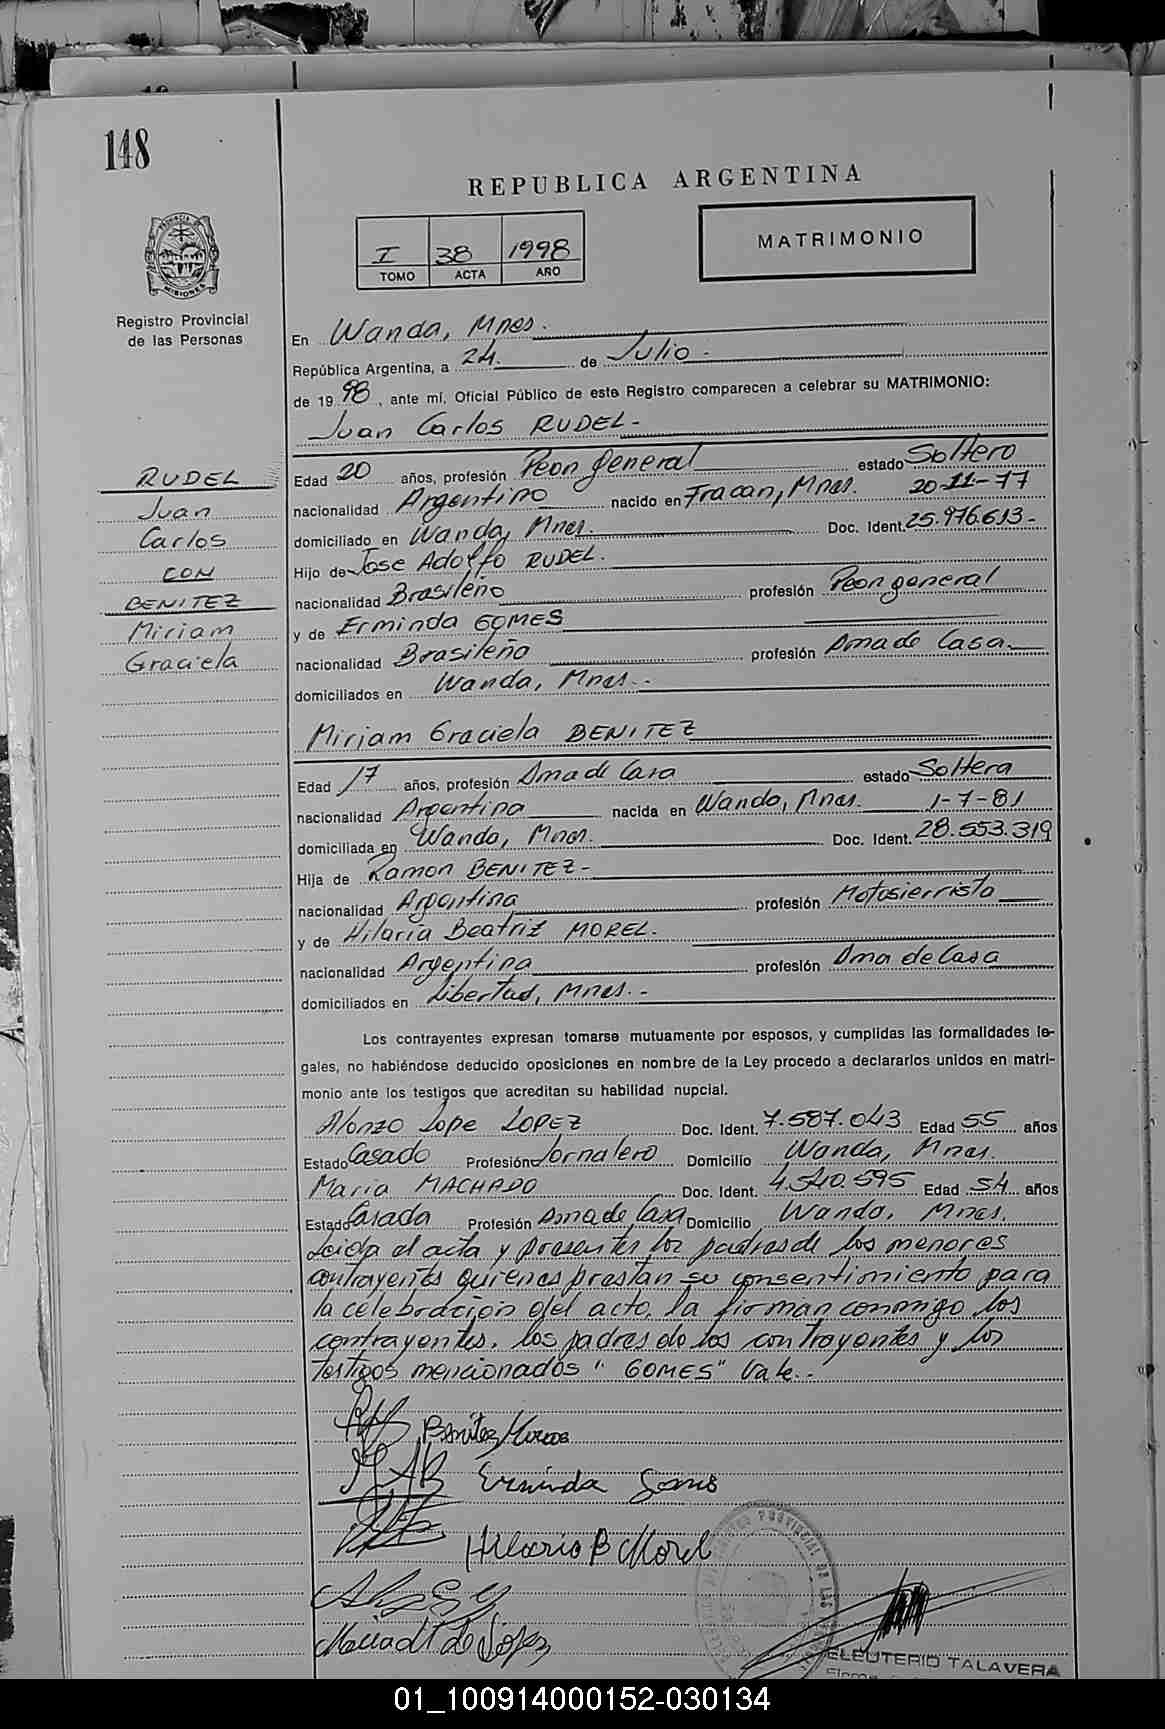 148
REPUBLICA ARGENTINA
I 38 1998
TOMO ACTA AÑO
MATRIMONIO
PROVINCIA DE
MISIONES
Registro Provincial
de las Personas
En Wanda, Mnes.
República Argentina, a 24. de Julio.
de 19 98, ante mí, Oficial Público de este Registro comparecen a celebrar su MATRIMONIO:
Juan Carlos RUDEL-
RUDEL
Juan
Carlos
CON
BENITEZ
Miriam
Graciela
Edad 20 años, profesión Peon general estado Soltero
nacionalidad Argentino nacido en Fracan, Mnes. 20-11-77
domiciliado en Wanda, Mnes. Doc. Ident. 25.976.613-
Hijo de Jose Adolfo RUDEL.
nacionalidad Brasileño profesión Peon general
y de Erminda GOMES
nacionalidad Brasileño profesión Ama de Casa.
domiciliados en Wanda, Mnes.-
Miriam Graciela BENITEZ
Edad 17 años, profesión Ama de Casa estado Soltera
nacionalidad Argentina nacida en Wanda, Mnes. 1-7-81
domiciliada en Wanda, Mnes. Doc. Ident. 28.553.319
Hija de Ramon BENITEZ-
nacionalidad Argentina profesión Motosierrista
y de Hilaria Beatriz MOREL.
nacionalidad Argentina profesión Ama de Casa
domiciliados en Libertad, Mnes.-
Los contrayentes expresan tomarse mutuamente por esposos, y cumplidas las formalidades le-
gales, no habiéndose deducido oposiciones en nombre de la Ley procedo a declararlos unidos en matri-
monio ante los testigos que acreditan su habilidad nupcial.
Alonzo Lope LOPEZ Doc. Ident. 7.587.043 Edad 55 años
Estado Casado Profesión Jornalero Domicilio Wanda, Mnes.
Maria MACHADO Doc. Ident. 4.540.595 Edad 54 años
Estado Casada Profesión Ama de Casa Domicilio Wanda, Mnes.
Leida el acta y presentes los padres de los menores
contrayentes quienes prestan su consentimiento para
la celebracion del acto, la firman conmigo los
contrayentes, los padres de los contrayentes y los
testigos mencionados "GOMES" Vale.-
Benitez
Erminda Gomes
Hilaria B Morel
Maria de Lopez
ELEUTERIO TALAVERA
01_100914000152-030134